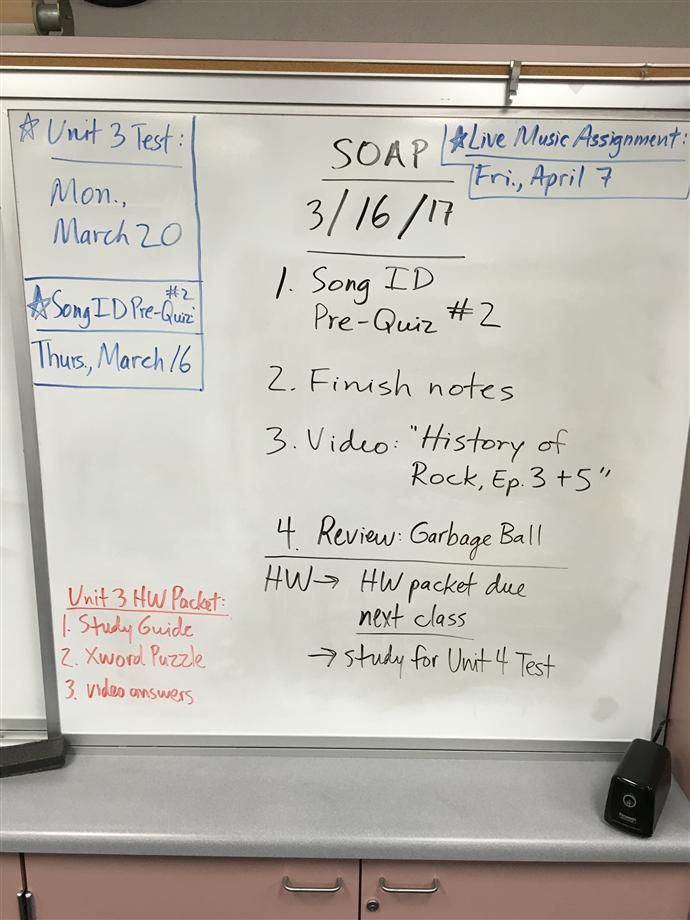 ☆ Unit 3 Test:
Mon.,
March 20
☆ Song ID Pre-Quiz #2
Thurs., March 16
SOAP
3/16/17
1. Song ID
Pre-Quiz #2
2. Finish notes
3. Video: "History of
Rock, Ep. 3 + 5"
4. Review: Garbage Ball
HW → HW packet due
next class
→ study for Unit 4 Test
★ Live Music Assignment:
Fri., April 7
Unit 3 HW Packet:
1. Study Guide
2. Xword Puzzle
3. video answers